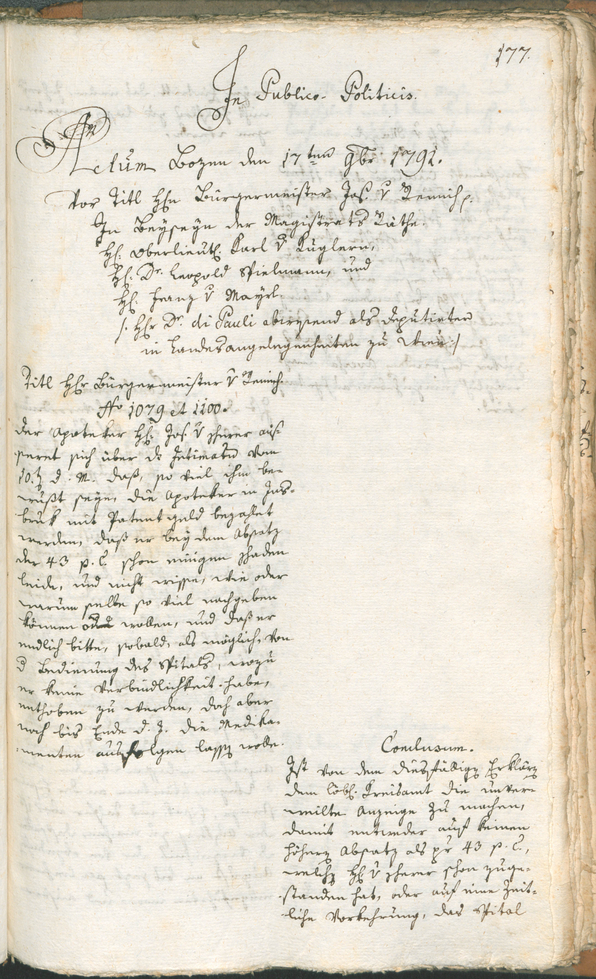 177.
In Publico Politicis.
Actum Bozen den 17ten 9br: 1791.
Vor Titl Hhn Bürgermeister Jos: v Remich:
In Beyseyn der Magistrats Räthe.
Hh: Oberlieut: Karl v Kuglern,
Hh: Dr. Leopold Spielmann, und
Hh: Franz v Mayrl
/: Hhr Dr. di Pauli abwesend als deputierter
in Landesangelegenheiten zu Wien :/
Titl Hhr Bürgermeister v Remich.
No 1079 et 1100.
Der Apoteker Hh: Jos: v Scherer aus-
seret sich über die Intimaten vom
10.t d. M. daß, so viel ihm be-
wußt seye, die Apoteker in Jns-
bruk mit Patent geld bezahlet
werden, daß er bey dem Absatz
der 43 p. C schon einigen Schaden
leide, und nicht wisse, wie oder
warum selbe so viel nachgeben
können wollen, und daß er
endlich bitte, sobald, als möglich, von
d Bedienung des Spitals, wozu
er keine Verbindlichkeit habe,
enthoben zu werden, doch aber
noch bis Ende d. J. die Medika-
menten ausfolgen lassen wolle.
Conclusum.
Ist von dem diesfälligen Erklären
dem löbl. Kreisamt die unver-
weilte Anzeige zu machen,
damit entweder auf keinen
höhern Absatz als pr 43 p. C.,
welche Hh: v Scherer schon zuge-
standen hat, oder auf eine Zeit-
liche Vorkehrung, das Spital